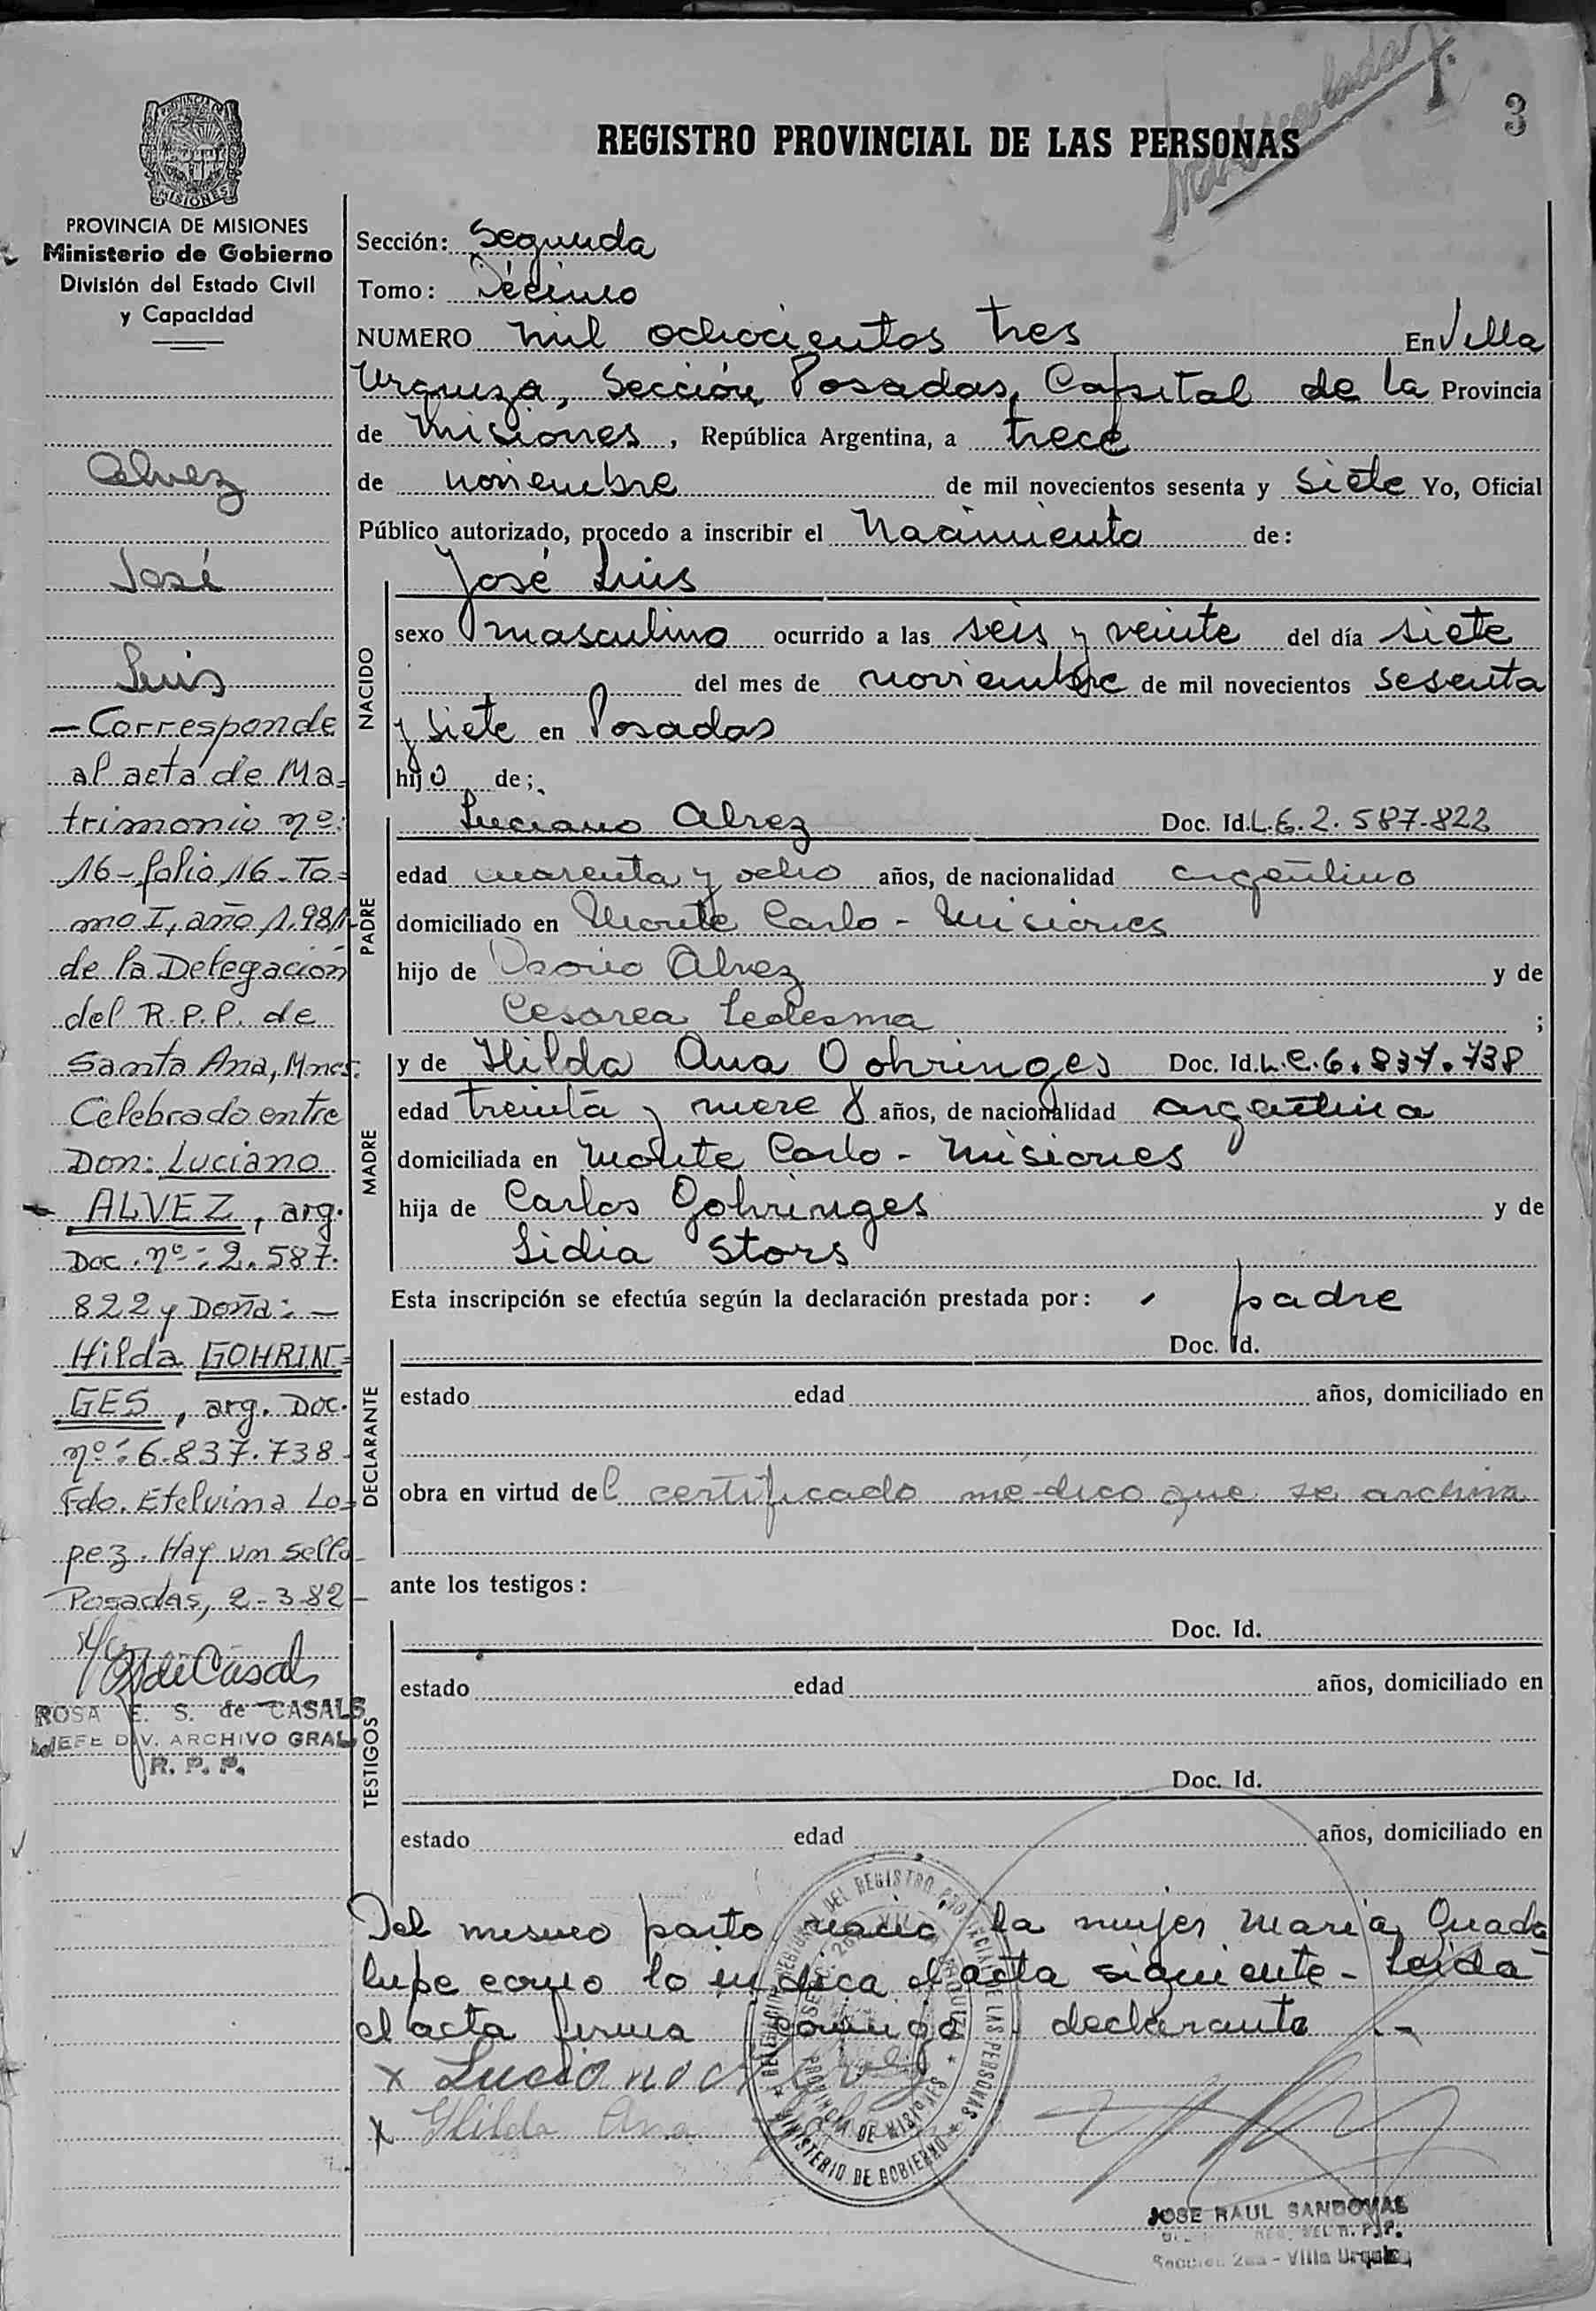 Matriculado
3
REGISTRO PROVINCIAL DE LAS PERSONAS
PROVINCIA DE MISIONES
Ministerio de Gobierno
División del Estado Civil
y Capacidad
Alvez
José
Luis
- Corresponde
al acta de Ma=
trimonio nº:
16 - folio 16 - To=
mo I, año 1.981
de la Delegación
del R.P.P. de
Santa Ana, Mnes.
Celebrado entre
Don: Luciano
ALVEZ, arg.
Doc. nº: 2.587.
822 y Doña: -
Hilda GOHRIN=
GES, arg. Doc.
nº: 6.837.738
Fdo. Etelvina Lo=
pez. Hay un sello
Posadas, 2-3-82-
ROSA E. S. de CASALS
JEFE DIV. ARCHIVO GRAL
R. P. P.
Sección: Segunda
Tomo: Décimo
NUMERO mil ochocientos tres En Villa
Urquiza, Sección Posadas, Capital de la Provincia
de Misiones, República Argentina, a trece
de noviembre de mil novecientos sesenta y siete Yo, Oficial
Público autorizado, procedo a inscribir el Nacimiento de:
NACIDO
José Luis
sexo masculino ocurrido a las seis y veinte del día siete
del mes de noviembre de mil novecientos sesenta
y siete en Posadas
hijo de;
PADRE
Luciano Alvez Doc. Id. L.E. 2.587-822
edad cuarenta y ocho años, de nacionalidad argentino
domiciliado en Monte Carlo - Misiones
hijo de Osorio Alvez y de
Cesarea Ledesma ;
MADRE
y de Hilda Ana Gohringes Doc. Id. L.C. 6.837.738
edad treinta y nueve años, de nacionalidad argentina
domiciliada en Monte Carlo - Misiones
hija de Carlos Gohringes y de
Lidia Stors
Esta inscripción se efectúa según la declaración prestada por: padre
DECLARANTE
Doc. Id.
estado edad años, domiciliado en
obra en virtud del certificado médico que se archiva
ante los testigos:
TESTIGOS
Doc. Id.
estado edad años, domiciliado en
Doc. Id.
estado edad años, domiciliado en
Del mismo parto nació la mujer María Guada
lupe como lo indica el acta siguiente - Leída
el acta firma conmigo declarante --
x Luciano Alvez
x Hilda Ana
DELEGACION REGIONAL DEL REGISTRO PROVINCIAL DE LAS PERSONAS
MINISTERIO DE GOBIERNO
PROVINCIA DE MISIONES
JOSE RAUL SANDOVAL
Sección 2da - Villa Urquiza